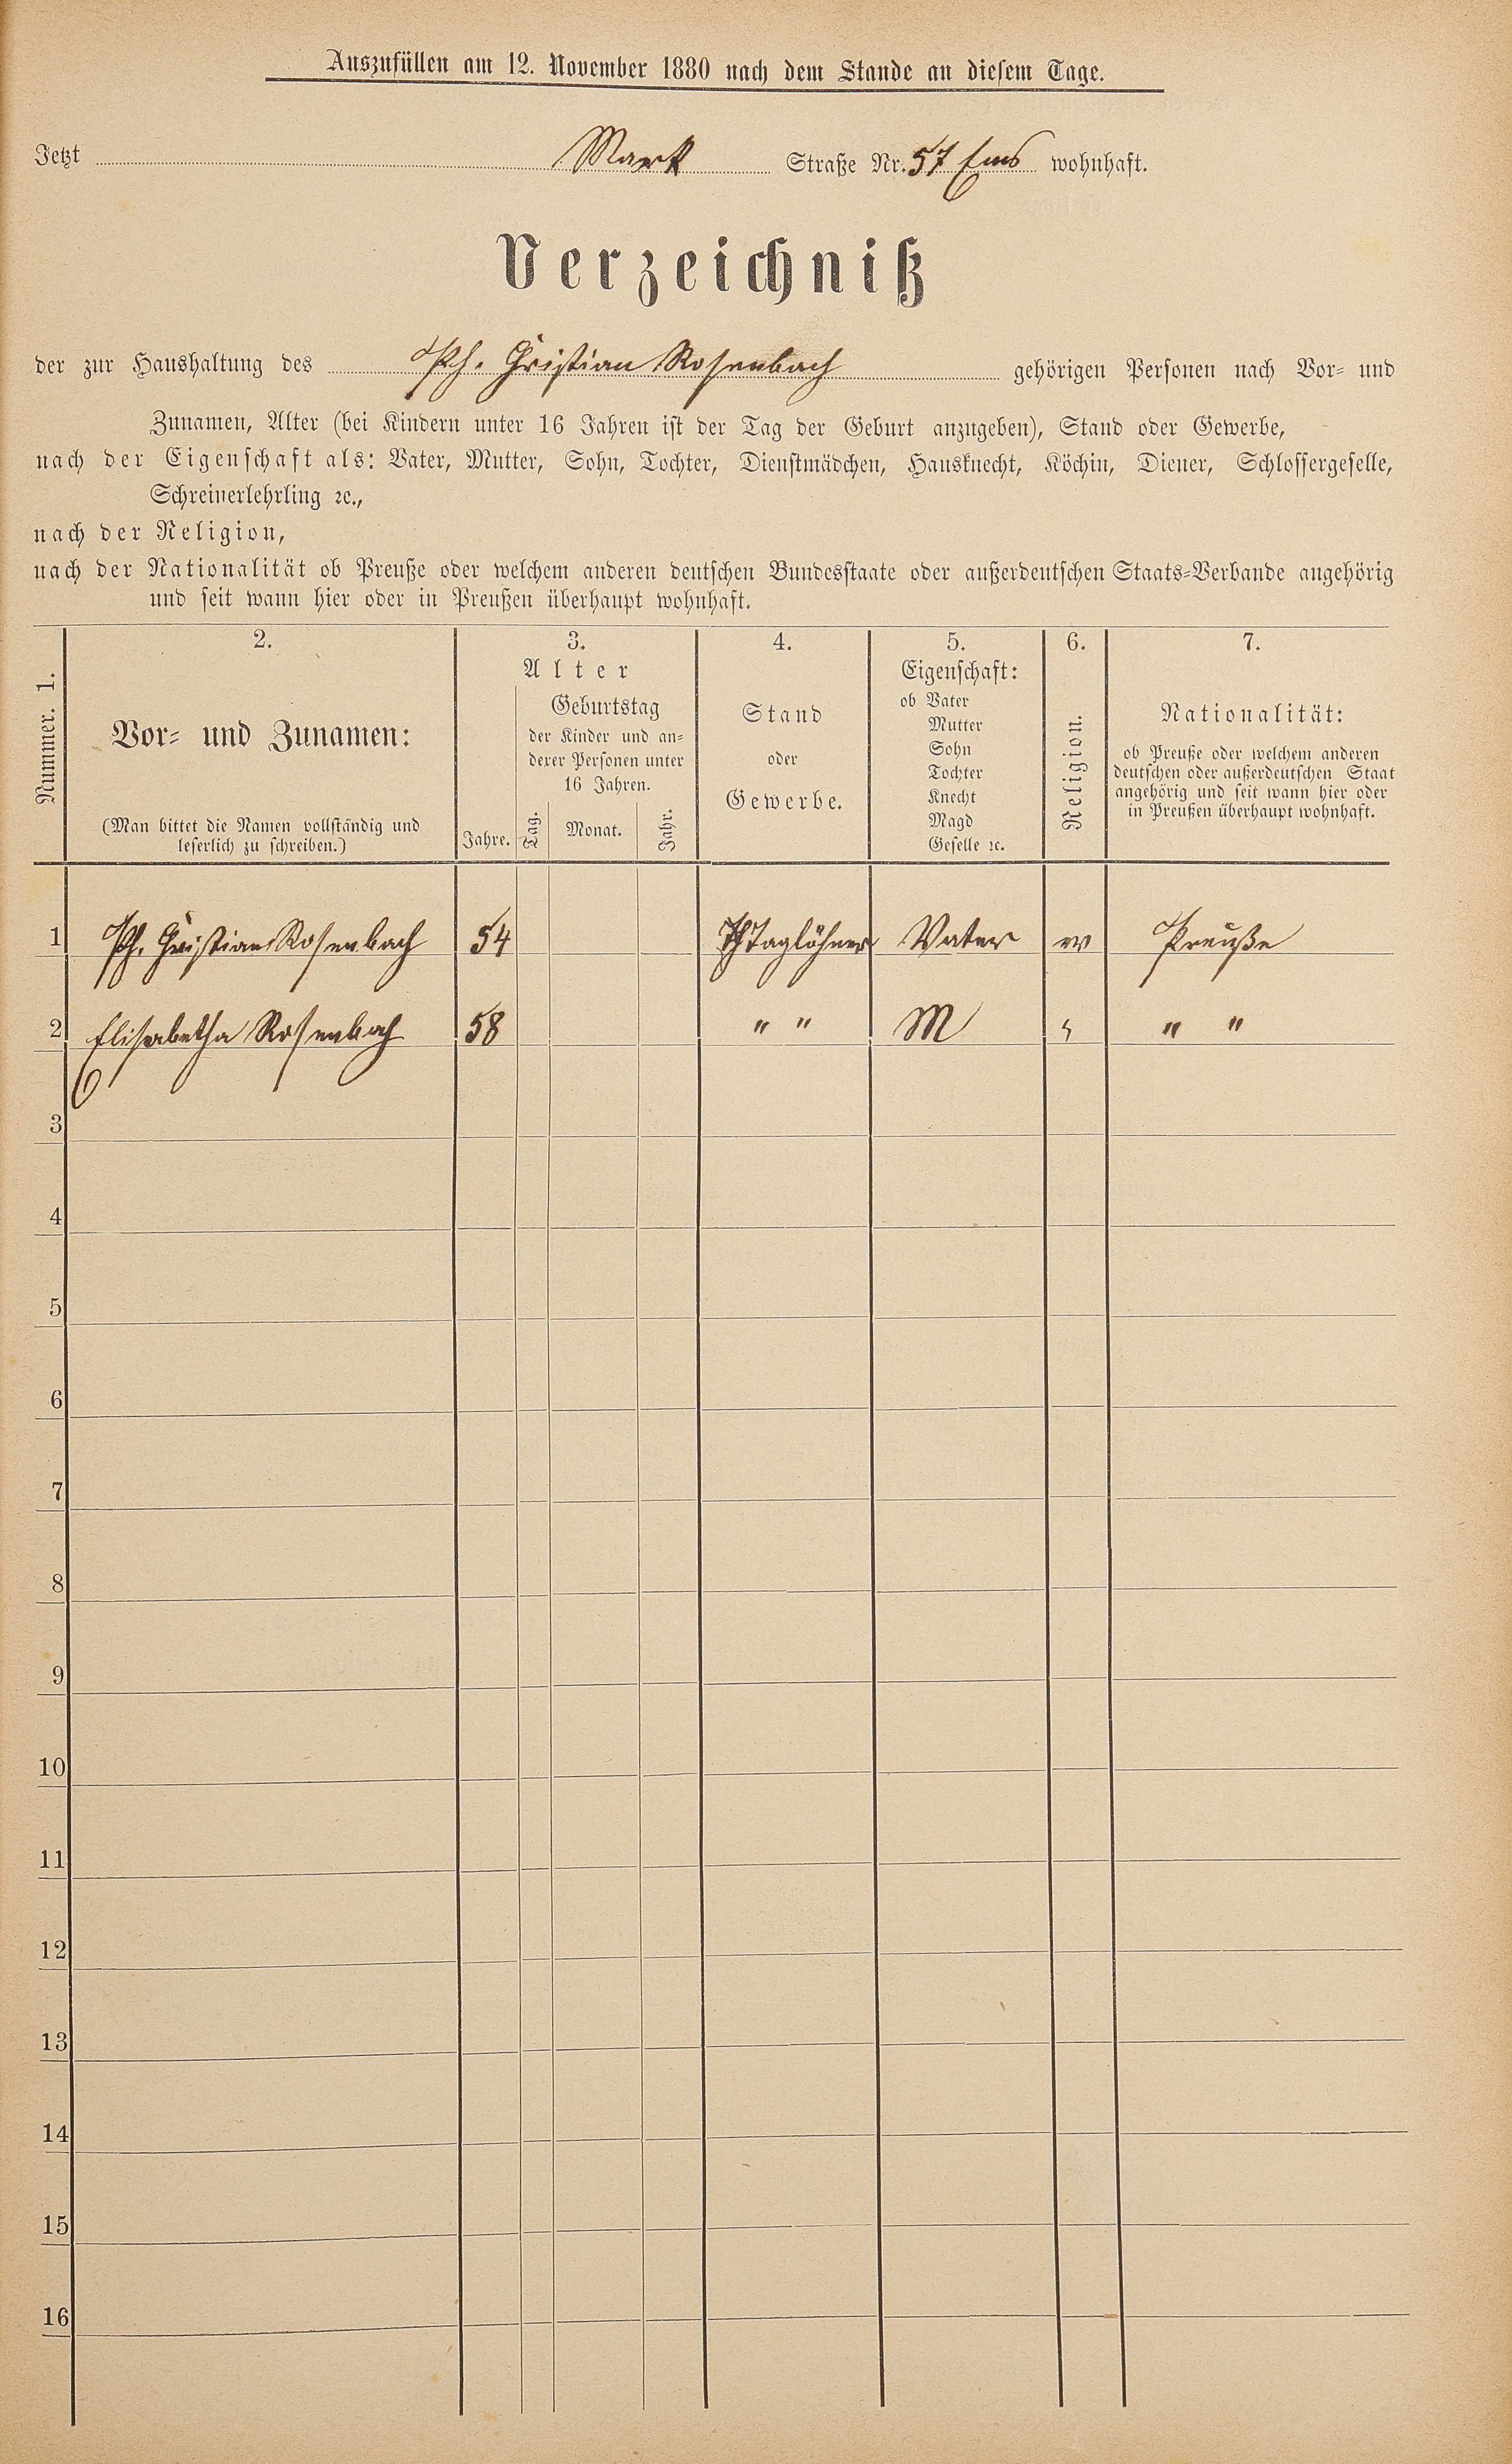 Auszufüllen am 12. November 1880 nach dem Stande an diesem Tage.
Jetzt Mark Straße Nr. 57 Ems wohnhaft.
Verzeichniß
der zur Haushaltung des Ph. Christian Rosenbach gehörigen Personen nach Vor- und
Zunamen, Alter (bei Kindern unter 16 Jahren ist der Tag der Geburt anzugeben), Stand oder Gewerbe,
nach der Eigenschaft als: Vater, Mutter, Sohn, Tochter, Dienstmädchen, Hausknecht, Köchin, Diener, Schlossergeselle,
Schreinerlehrling ꝛc.,
nach der Religion,
nach der Nationalität ob Preuße oder welchem anderen deutschen Bundesstaate oder außerdeutschen Staats-Verbande angehörig
und seit wann hier oder in Preußen überhaupt wohnhaft.
Nummer. 1.
2.
Vor- und Zunamen:
(Man bittet die Namen vollständig und
leserlich zu schreiben.)
3.
Alter
Jahre.
Geburtstag
der Kinder und an-
derer Personen unter
16 Jahren.
Tag. Monat. Jahr.
4.
Stand
oder
Gewerbe.
5.
Eigenschaft:
ob Vater
Mutter
Sohn
Tochter
Knecht
Magd
Geselle ꝛc.
6.
Religion.
7.
Nationalität:
ob Preuße oder welchem anderen
deutschen oder außerdeutschen Staat
angehörig und seit wann hier oder
in Preußen überhaupt wohnhaft.
1 Ph. Christian Rosenbach 54 Taglöhner Vater Preuße
2 Elisabetha Rosenbach 58 " " M " " "
3
4
5
6
7
8
9
10
11
12
13
14
15
16